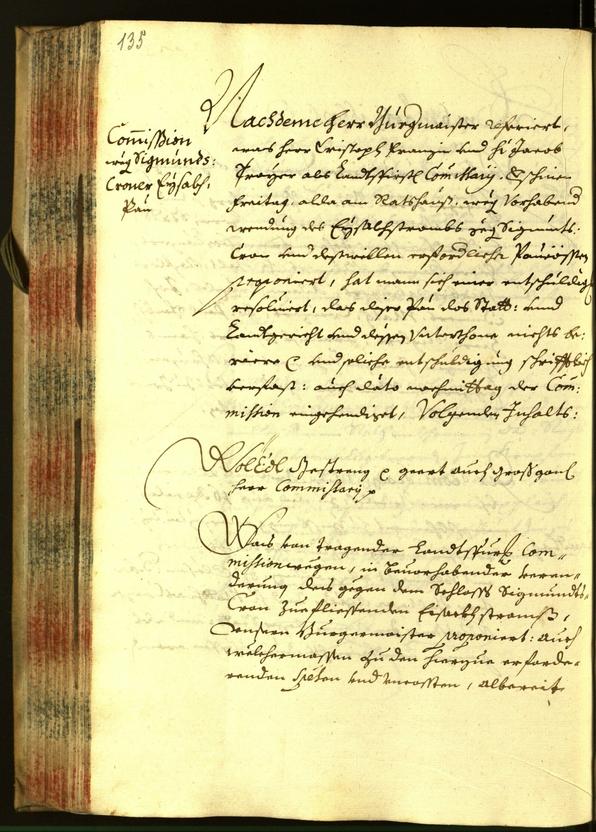 135
Com̄ission
weg Sigmunds:
Croner Eysakh:
Pau
Nachdeme herr Burgermaister referiert,
was herr Cristoph Franzin und hr Jacob
Troyer als Landtsfürstl Commissary,
Freitag, alda am Rathauß, weg vorhabend
wendung des Eysakhstrombs geg Sigmunts:
Cron und deßwillen erforderliche
proponiert, hat mann sich einer entschuldig
resoluiert, das diser Pau das Statt: und
Landtgericht und dessen Unterthone nichts be:
riere und soliche entschuldigung schrifftlich
verfast: auch dato nachmittag der Com:
mission eingehendiget, Volgenden Inhalts:
WolEdl Gestreng geert auch großgonst
herr Commissary
Was von tragender Landtsfürstl Com„
missionwegen, in beuorhabender veren„
derung des gegen dem Schloss Sigmundts„
Cron zuefliessenden Eisackhstromß,
Unsern Burgermaister proponiert: auch
wölchermassen zu den hierzue erforde„
renden und uncossten, albereit